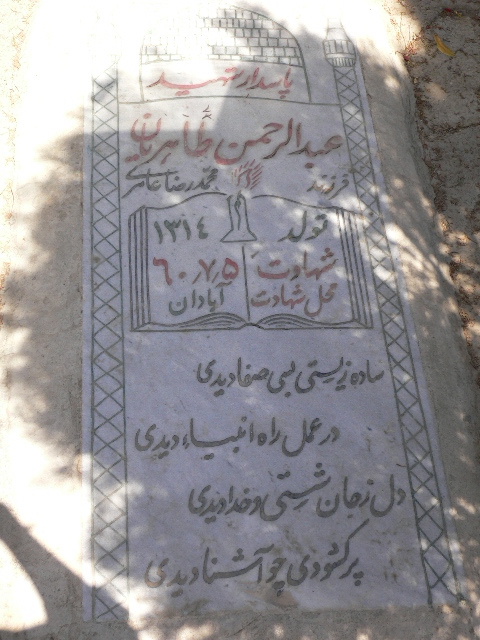 پاسدار شهید
عبدالرحمن طاهریان
فرزند محمدرضا
تولد ۱۳۱٤
شهادت ٦۰٫۷٫۵
محل شهادت آبادان
ساده زیستی بسی صفا دیدی
در عمل راه انبیاء دیدی
دل زجان شستی و خدا دیدی
پر کشودی چو آشنا دیدی